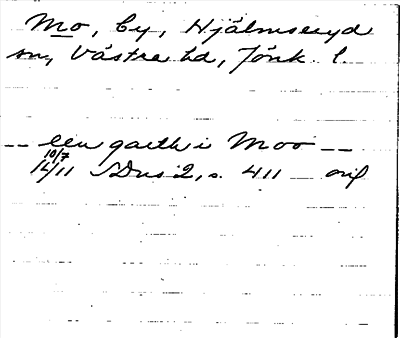 Mo, by, Hjälmseryd
sn, Västra hd, Jönk. l.
-- een garth i Moo --
10/7
1411 SDns 2, s. 411 — orig